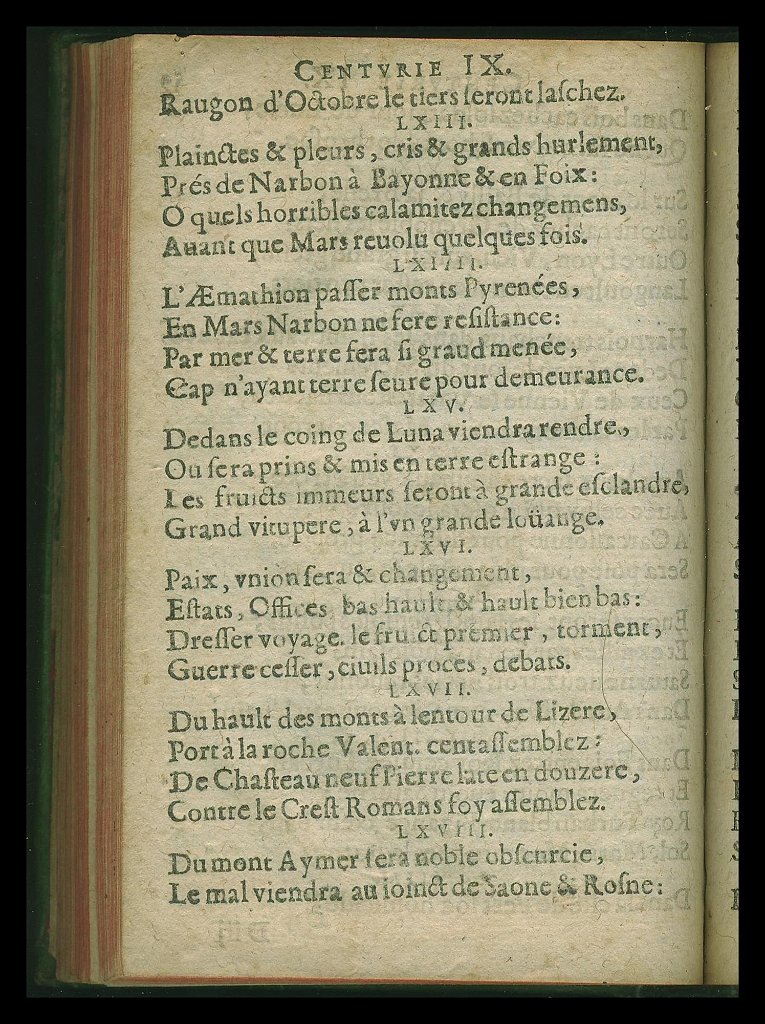 CENTVRIE IX.
Raugon d'Octobre le tiers ſeront laſchez.
LXIII.
Plainctes & pleurs, cris & grands hurlement,
Prés de Narbon à Bayonne & en Foix:
O quels horribles calamitez changemens,
Auant que Mars reuolu quelques fois.
LXIIII.
L'Æmathion paſſer monts Pyrenées,
En Mars Narbon ne fere reſiſtance:
Par mer & terre fera ſi graud menée,
Cap n'ayant terre ſeure pour demeurance.
LXV.
Dedans le coing de Luna viendra rendre,
Ou ſera prins & mis en terre eſtrange:
Les fruicts immeurs ſeront à grande eſclandre,
Grand vitupere, à l'vn grande loüange.
LXVI.
Paix, vnion ſera & changement,
Eſtats, Offices, bas hault, & hault bien bas:
Dreſſer voyage. le fruict premier, torment,
Guerre ceſſer, ciuils proces, debats.
LXVII.
Du hault des monts à lentour de Lizere,
Port à la roche Valent. cent aſſemblez:
De Chaſteau neuf Pierre late en douzere,
Contre le Creſt Romans foy aſſemblez.
LXVIII.
Du mont Aymer ſera noble obſcurcie,
Le mal viendra au ioinct de Saone & Roſne: